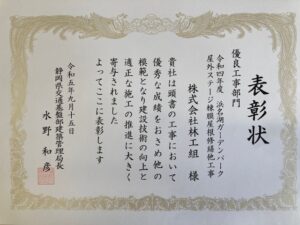 表彰状
優良工事部門
令和四年度 浜名湖ガーデンパーク
屋外ステージ棟膜屋根修繕他工事
株式会社林工組 様
貴社は頭書の工事において
優秀な成績をおさめ他の
模範となり建設技術の向上と
適正な施工の推進に大きく
寄与されました
よってここに表彰します
令和五年九月十五日
静岡県交通基盤部建築管理局長
水野 和彦